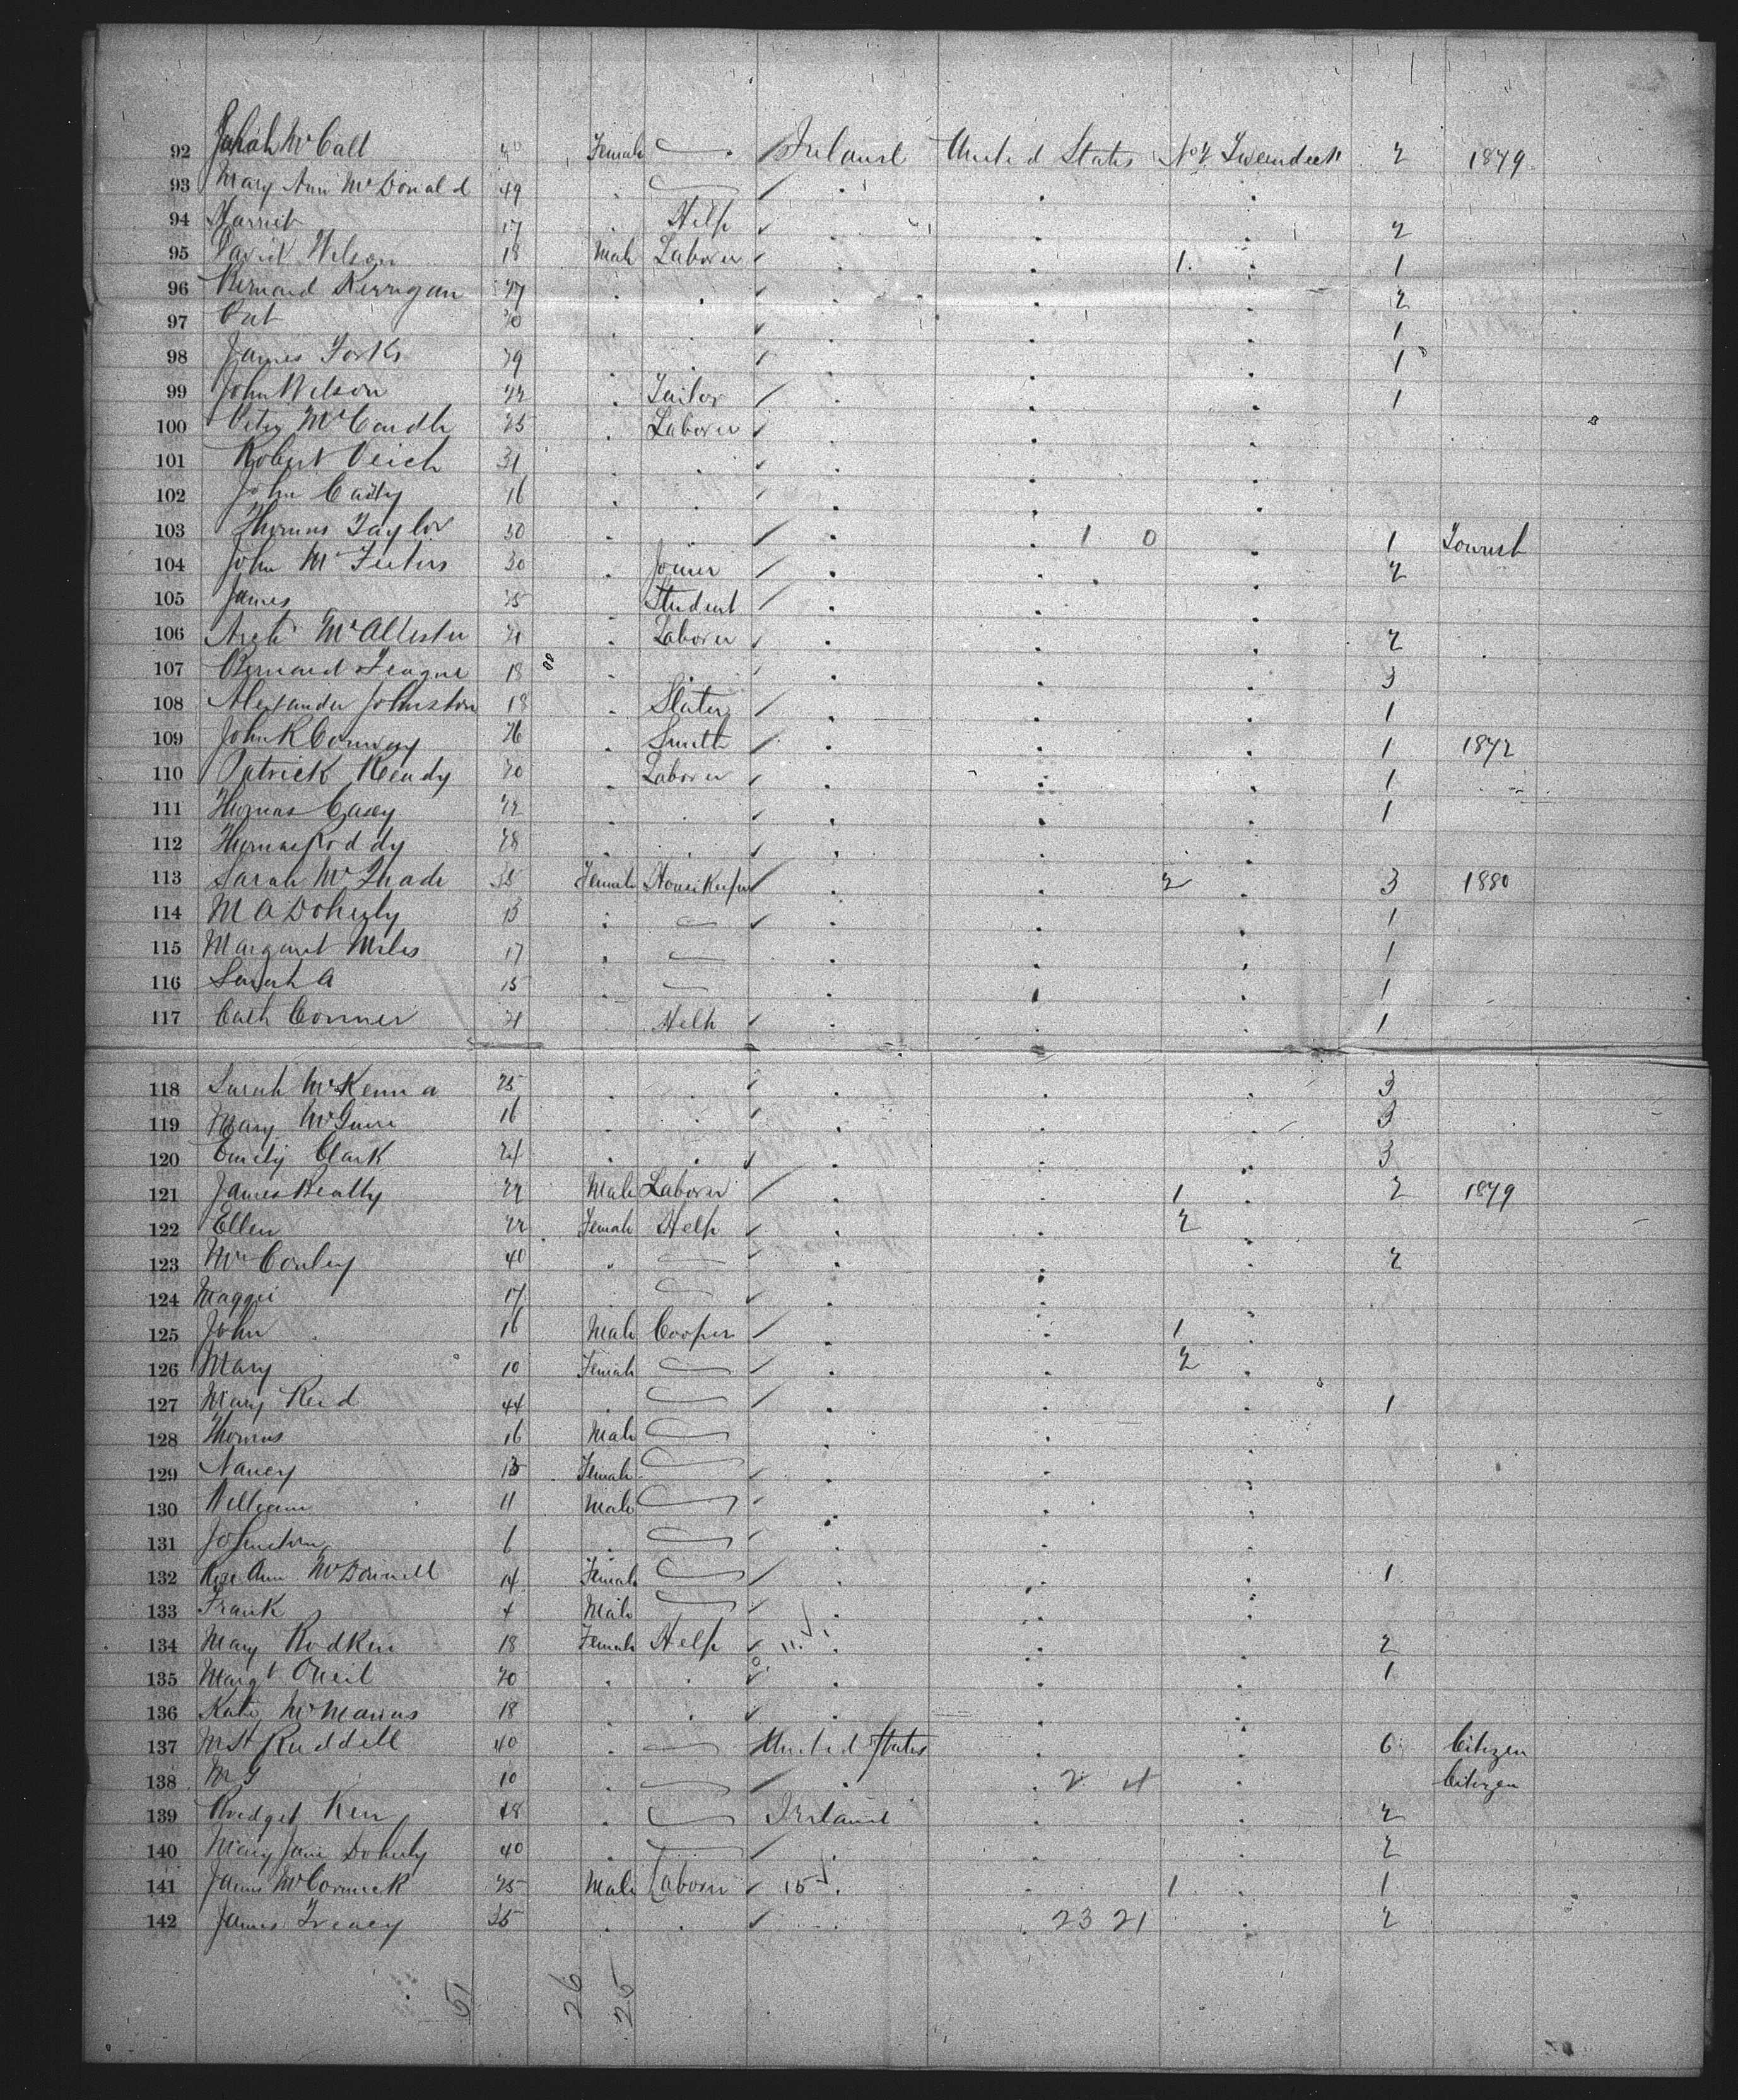 92 Sarah McCall Female Ireland United States No 2 Tweendeck 2 1879
93 Mary Ann McDonald 49
94 Harriet 17 Help 2
95 David Wilson 18 Male Laborer 1 1
96 Bernard Kerrigan 27 2
97 Pat 20 1
98 James Forks 29 1
99 John Wilson 22 Tailor 1
100 Peter McCardle 25 Laborer
101 Robert Veich 31
102 John Cassy 16
103 Thomas Taylor 30 1 0 1 Tourist
104 John McFeeters 30 Joiner 2
105 James 25 Student
106 McAllister 21 Laborer 2
107 Bernard Teague 18 3
108 Alexander Johnston 18 Slater 1
109 John R Conway 26 Smith 1 1872
110 Patrick Ready 20 Laborer 1
111 Thomas Casey 22 1
112 Thomas Roddy 28
113 Sarah McQuade 35 Female Housekeeper 2 3 1880
114 M A Doherty 13 1
115 Margaret Miles 17 1
116 Sarah A 15 1
117 Cath Conner 21 Help 1
118 Sarah McKenna 25 3
119 Mary McGuire 16 3
120 Emily Clark 24 3
121 James Beatty 22 Male Laborer 1 2 1879
122 Ellen 22 Female Help 2
123 Mrs Conley 40 2
124 Maggie 17
125 John 16 Male Cooper 1
126 Mary 10 Female 2
127 Mary Reid 44 1
128 Thomas 16 Male
129 Nancy 13 Female
130 William 11 Male
131 Johnston 6
132 Rose Ann McDonnell 14 Female 1
133 Frank 4 Male
134 Mary Rodken 18 Female Help 11 2
135 Margt Oneil 20 1
136 Kate McManus 18
137 Ruddell 40 United States 6 Citizen
138 10 2 4 Citizen
139 Bridget Kerr 48 Ireland 2
140 Mary Jane Doherty 40 2
141 James McCormick 25 Male Laborer 15 1 1
142 James Treacy 35 23 21 2
51 26 25